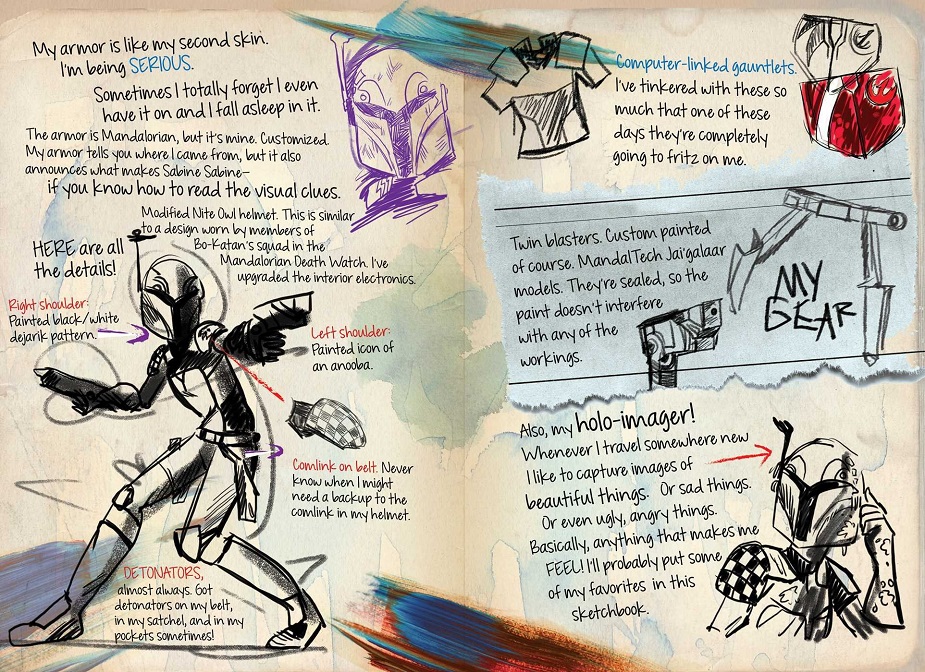 My armor is like my second skin.
I'm being SERIOUS.
Sometimes I totally forget I even
have it on and I fall asleep in it.
The armor is Mandalorian, but it's mine. Customized.
My armor tells you where I came from, but it also
announces what makes Sabine Sabine–
if you know how to read the visual clues.
Modified Nite Owl helmet. This is similar
to a design worn by members of
Bo-Katan's squad in the
Mandalorian Death Watch. I've
upgraded the interior electronics.
HERE are all
the details!
Right shoulder:
Painted black/white
dejarik pattern.
Left shoulder:
Painted icon of
an anooba.
Comlink on belt. Never
know when I might
need a backup to the
comlink in my helmet.
DETONATORS,
almost always. Got
detonators on my belt,
in my satchel, and in my
pockets sometimes!
Computer-linked gauntlets.
I've tinkered with these so
much that one of these
days they're completely
going to fritz on me.
Twin blasters. Custom painted
of course. MandalTech Jai'galaar
models. They're sealed, so the
paint doesn't interfere
with any of the
workings.
MY
GEAR
Also, my holo-imager!
Whenever I travel somewhere new
I like to capture images of
beautiful things. Or sad things.
Or even ugly, angry things.
Basically, anything that makes me
FEEL! I'll probably put some
of my favorites in this
sketchbook.